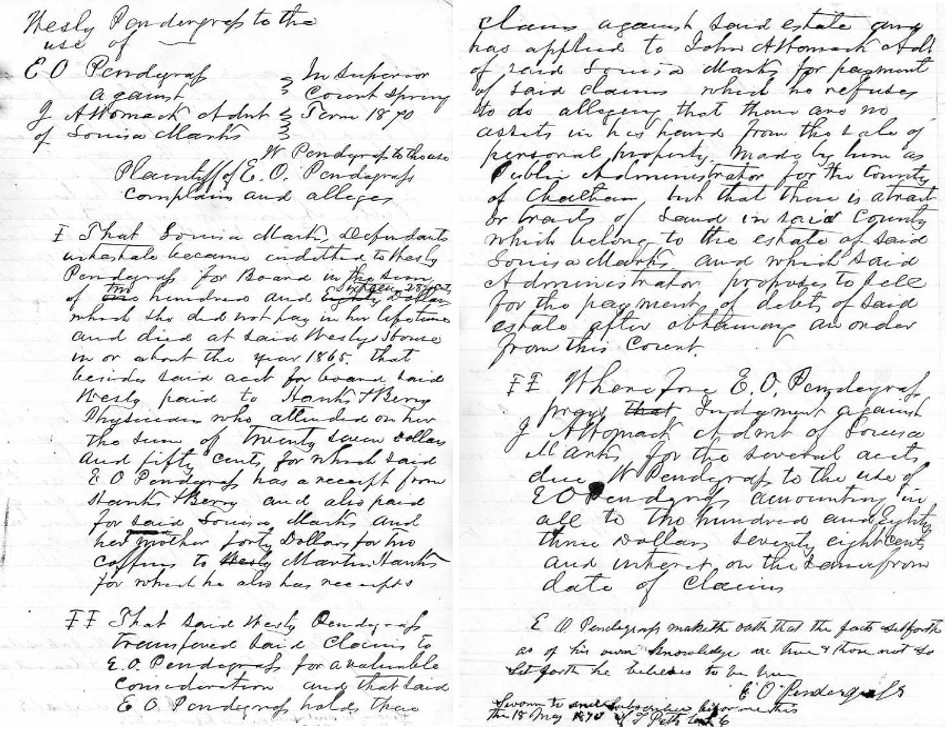 Wesly Pendergrass to the
use of
E O Pendegrass
against
J A Womack Admt
of Louisa Marks
In Superior
Court Spring
Term 1870
W Pendegrass to the use
Plaintiff of E. O. Pendegrass
complains and alleges
I That Louisa Marks, Defendants
intestate became indebted to Wesly
Pendegrass for Board in the sum
of two hundred and sixteen 28/100 Dollars
which she did not pay in her lifetime
and died at said Weslys House
in or about the year 1865 that
besides said acct for board said
Wesly paid to Hanks & Berry
Physicians who attended on her
the sum of twenty seven Dollars
and fifty cents, for which said
E O Pendegrass has a receipt from
Hanks & Berry and also paid
for said Louisa Marks and
her mother forty Dollars for two
coffins to Wesly Martin Hanks
for which he also has receipts
II That said Wesly Pendegrass
transfered said claims to
E.O. Pendegrass for a valuable
consideration and that said
E O Pendegrass holds these
claims against said estate and
has applied to John A Womack Adt
of said Louisa Marks for payment
of said claims which he refuses
to do alleging that there are no
assets in his hand from the sale of
personal property. Made by him as
Public Administrator for the County
of Chatham, but that there is a tract
or tracts of Land in said County
which belong to the estate of said
Louisa Marks and which said
Administrator proposes to sell
for the payments of debts of said
estate after obtaining an order
from this Court.
II Where fore E. O. Pendegrass
prays that Judgment against
J A Womack Admt of Louisa
Marks for the several accts
due W Pendegrass to the use of
E O Pendegrass amounting in
all to two hundred and Eighty
three Dollars seventy eight cents
and interest on the same from
date of claims
E O. Pendegrass maketh oath that the facts set forth
as of his own knowledge are true & those not so
set forth he believes to be true
E. O. Pendergrass
Sworn to and subscribed before me this
the 18 May 1870